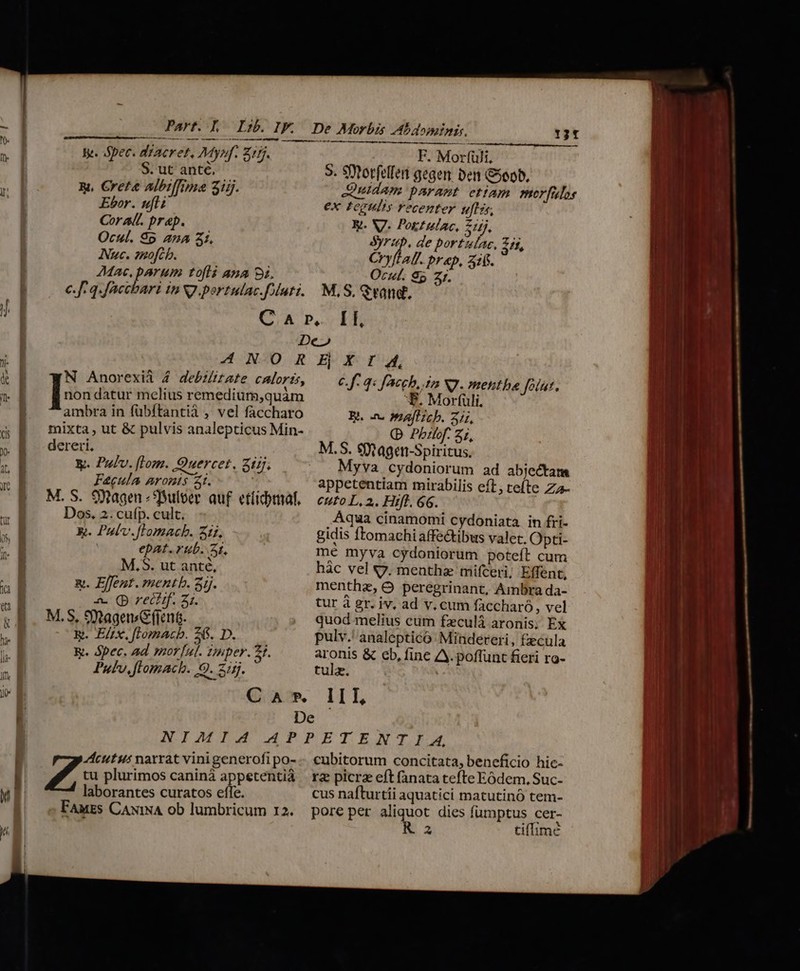 Part. I. Lib. IV. De Morbis Abdominis. 131
℞. Spec. diacret. Mynf. ʒiij.
S. ut ante.
℞. Cretæ albissimæ ʒiij.
Ebor. usti
Corall. præp.
Ocul. ♋ ana ʒi.
Nuc. mosch.
Mac. parum tosti ana ℈i.
c. s. q. sacchari in ▽. portulac. soluti.
F. Morsuli.
S. Morsellen gegen den Soob.
Quidam parant etiam morsulos
ex tegulis recenter ustis,
℞. ▽. Portulac. ʒiij.
Syrup. de portulac. ʒii,
Crystall. præp. ʒiß.
Ocul. ♋ ʒi.
M. S. Tranck.
CAP. II.
De
ANOREXIA,
IN Anorexiâ á debilitate caloris,
non datur melius remedium, quàm
ambra in substantiâ, vel saccharo
mixta, ut & pulvis analepticus Min-
dereri.
℞. Pulv. stom. Quercet. ʒiij.
Fæcula aronis ʒi.
M. S. Magen-Pulver auf etlichmal.
Dos. 2. cusp. cult.
℞. Pulv. stomach. ʒii.
epat. rub. ʒi.
M. S. ut ante.
℞. Essent. menth. ʒij.
rectif. ʒi.
M. S. Magen-Essentz.
℞. Elix. stomach. ʒß. D.
℞. Spec. ad morsul. imper. ʒi.
Pulv. stomach. Q. ʒiij.
c. s. q. sacch. in ▽. menthæ solut.
F. Morsuli.
℞. mastich. ʒii,
Philos. ʒi,
M. S. Magen-Spiritus.
Myva cydoniorum ad abjectam
appetentiam mirabilis est, teste Za-
cuto L. 2. Hist. 66.
Aqua cinamomi cydoniata in fri-
gidis stomachi affectibus valet. Opti-
me myva cydoniorum potest cum
hâc vel ▽. menthæ misceri. Essent.
menthæ, peregrinant. Ambra da-
tur à gr. iv. ad v. cum saccharô, vel
quod melius cum fæculâ aronis. Ex
pulv. analepticô Mindereri, fæcula
aronis & eb, sine △. possunt fieri ro-
tulæ.
CAP. III.
De
NIMIA APPETENTIA.
ZAcutus narrat vini generosi po-
tu plurimos caninâ appetentiâ
laborantes curatos esse.
FAMES CANINA ob lumbricum 12.
cubitorum concitata, beneficio hie-
ræ picræ est sanata teste Eôdem. Suc-
cus nasturtii aquatici matutinô tem-
pore per aliquot dies sumptus cer-
R 2 tissimè